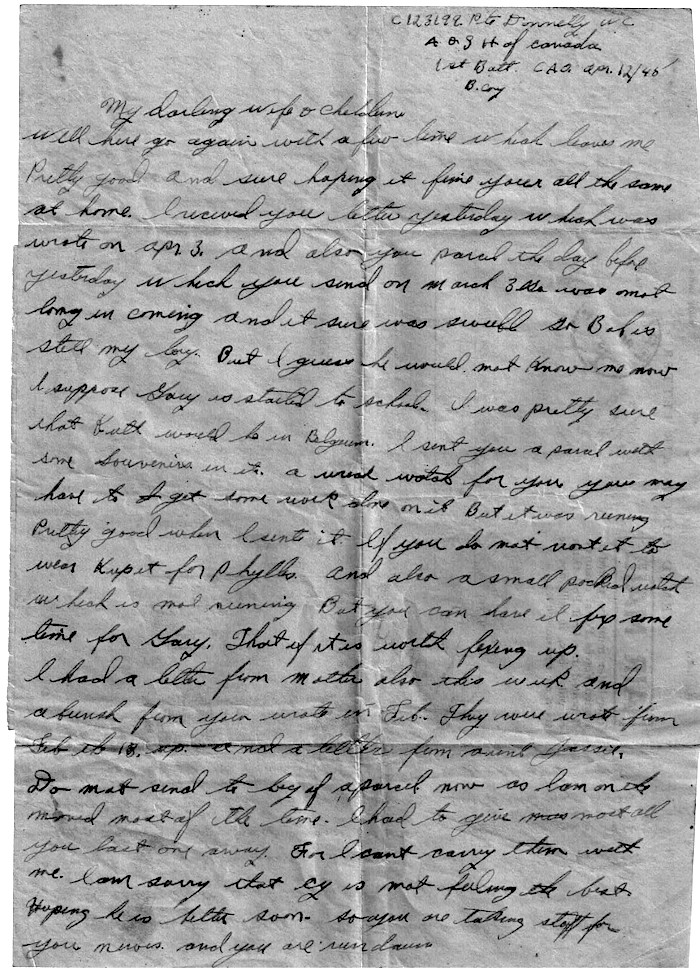 C123192 Pte Donnelly W C
A & S H of Canada
1st Batt. C.A.O. apr. 12/45
B. Coy
My darling wife & children
Well here go again with a few line which leaves me
Pretty good and sure hoping it fine your all the same
at home. I recived you letter yesterday which was
wrote on apr. 3. and also you parcel the day befor
yesterday which you send on march 3 so was mot
long in coming and it sure was swell so Bob is
still my boy. But I guess he would mot Know me now
I suppose Gary is started to school. I was pretty sure
that would be in Belgium. I sent you a parcel with
some souvenirs in it. a wrest watch for you you may
have to get some work done on it But it was running
Pretty good when I sent it If you do mot wont it to
wear Kep it for Phyllis. and also a small pocket watch
which is mot running But you can have it fix some
time for Gary. That if it is worth fixing up.
I had a letter from mother also this week and
a bunch from you wrote in Feb. They were wrote from
Feb 18 up. and a letter from aunt Jassie.
Do mot send to big of a parcel now as I am on the
moved most of the time. I had to give most all
you last one away. For I cant carry them with
me. I am sorry that Cy is mot feeling the best
Hoping he is better soon. so you are taking stuff for
you nerves. and you are run down